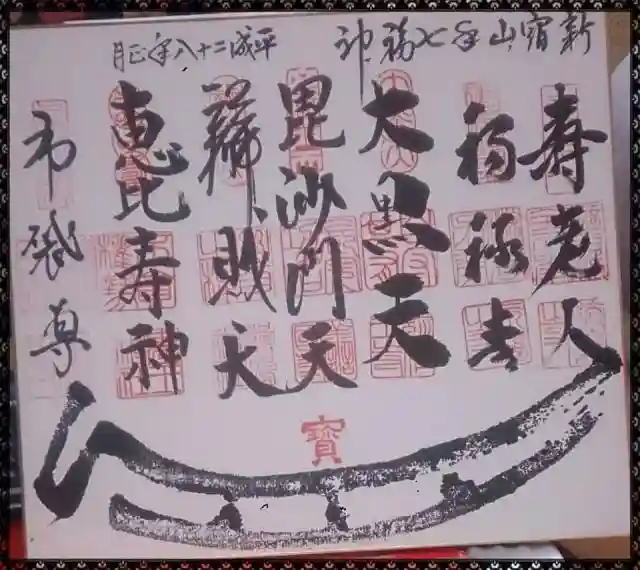 新宿山手七福神
平成二十八年正月
寿老人
福禄寿
大黒天
毘沙門天
辨財天
恵比寿神
布袋尊
寶